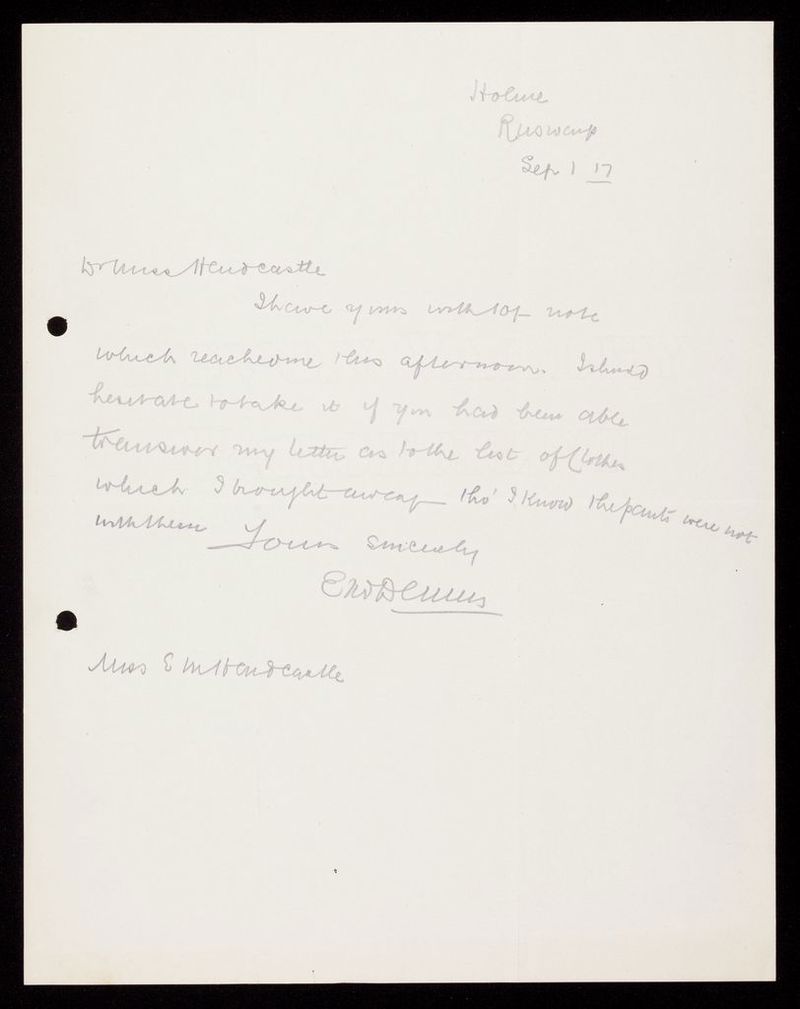 Holme
Ruswarp
Sep 1 17
Dr Miss Hardcastle
I have yours with 10/- note
which reached me this afternoon. I should
hesitate to take it if you had been able
to answer my letter as to the list of Clothes
which I brought away tho' I know the pants were not
with them Yours sincerely
Miss E M Hardcastle